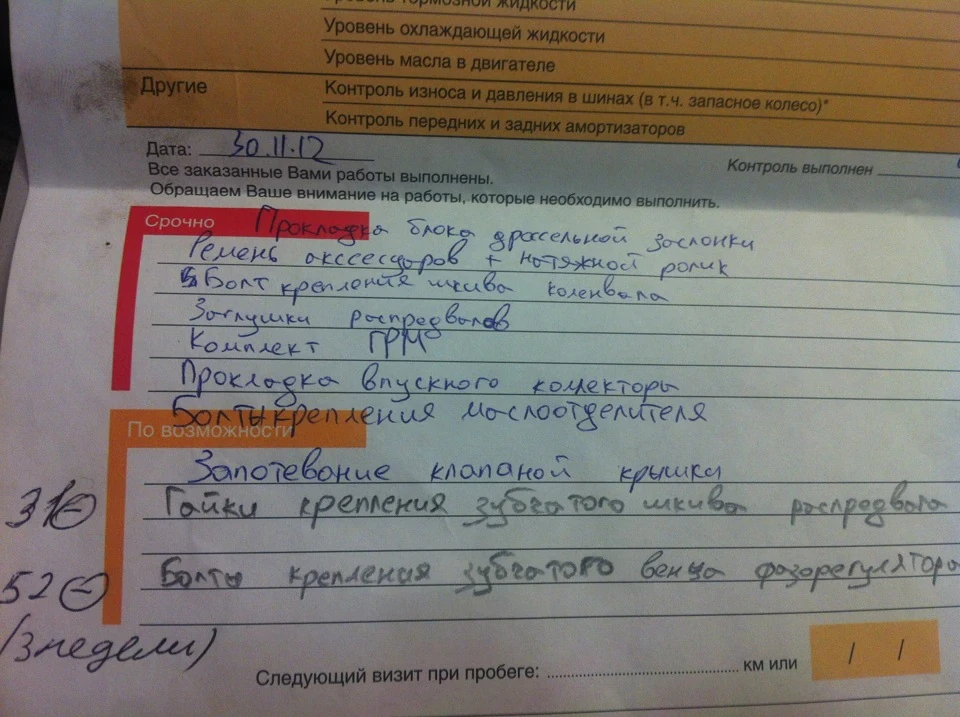 Уровень тормозной жидкости
Уровень охлаждающей жидкости
Уровень масла в двигателе
Другие
Контроль износа и давления в шинах (в т.ч. запасное колесо)*
Контроль передних и задних амортизаторов
Дата: 30.11.12
Контроль выполнен
Все заказанные Вами работы выполнены.
Обращаем Ваше внимание на работы, которые необходимо выполнить.
Срочно Прокладка блока дроссельной заслонки
Ремень акссесуаров + натяжной ролик
Болт крепления шкива коленвала
Заглушки распредвалов
Комплект ГРМ
Прокладка впускного коллектора
Болты крепления маслоотделителя
По возможности
Запотевание клапаной крышки
Гайки крепления зубчатого шкива распредвала
Болты крепления зубчатого венца фазорегулятора
52
(3 недели)
Следующий визит при пробеге: км или / /